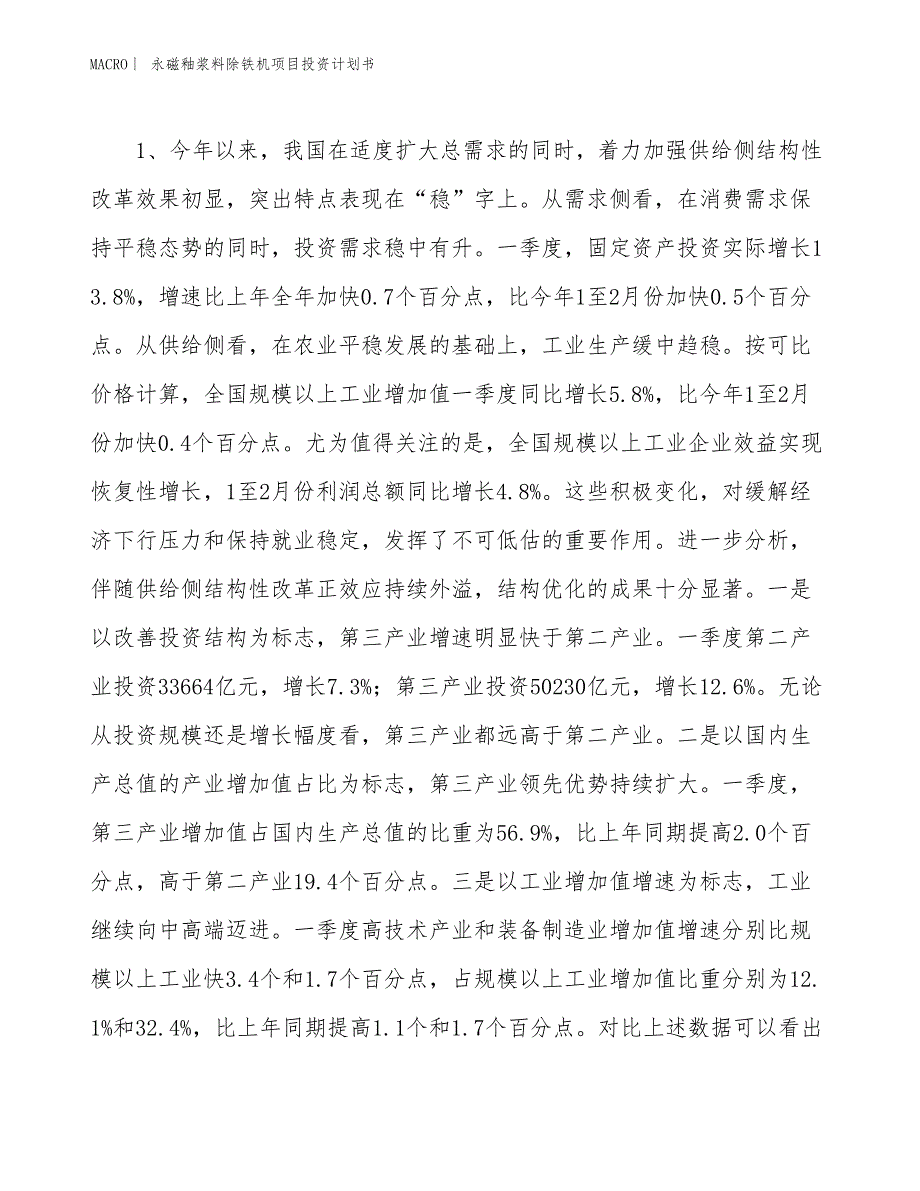 MACRO｜ 永磁釉浆料除铁机项目投资计划书
1、今年以来，我国在适度扩大总需求的同时，着力加强供给侧结构性
改革效果初显，突出特点表现在“稳”字上。从需求侧看，在消费需求保
持平稳态势的同时，投资需求稳中有升。一季度，固定资产投资实际增长1
3.8%，增速比上年全年加快0.7个百分点，比今年1至2月份加快0.5个百分
点。从供给侧看，在农业平稳发展的基础上，工业生产缓中趋稳。按可比
价格计算，全国规模以上工业增加值一季度同比增长5.8%，比今年1至2月
份加快0.4个百分点。尤为值得关注的是，全国规模以上工业企业效益实现
恢复性增长，1至2月份利润总额同比增长4.8%。这些积极变化，对缓解经
济下行压力和保持就业稳定，发挥了不可低估的重要作用。进一步分析，
伴随供给侧结构性改革正效应持续外溢，结构优化的成果十分显著。一是
以改善投资结构为标志，第三产业增速明显快于第二产业。一季度第二产
业投资33664亿元，增长7.3%；第三产业投资50230亿元，增长12.6%。无论
从投资规模还是增长幅度看，第三产业都远高于第二产业。二是以国内生
产总值的产业增加值占比为标志，第三产业领先优势持续扩大。一季度，
第三产业增加值占国内生产总值的比重为56.9%，比上年同期提高2.0个百
分点，高于第二产业19.4个百分点。三是以工业增加值增速为标志，工业
继续向中高端迈进。一季度高技术产业和装备制造业增加值增速分别比规
模以上工业快3.4个和1.7个百分点，占规模以上工业增加值比重分别为12.
1%和32.4%，比上年同期提高1.1个和1.7个百分点。对比上述数据可以看出